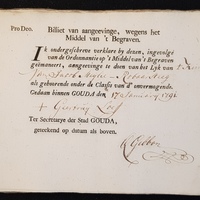 Pro Deo. Billiet van aangeevinge, wegens het
Middel van 't Begraven.
Ik ondergeschreve verklare by dezen, ingevolge
van de Ordonnantie op 't Middel van 't Begraven
geëmaneert, aangeevinge te doen van het Lyk van
Jan
als gehoorende onder de Classis van d' onvermogende.
Gedaan binnen GOUDA den 17 January 1791
Ter Secretarye der Stad GOUDA,
geteekend op datum als boven.